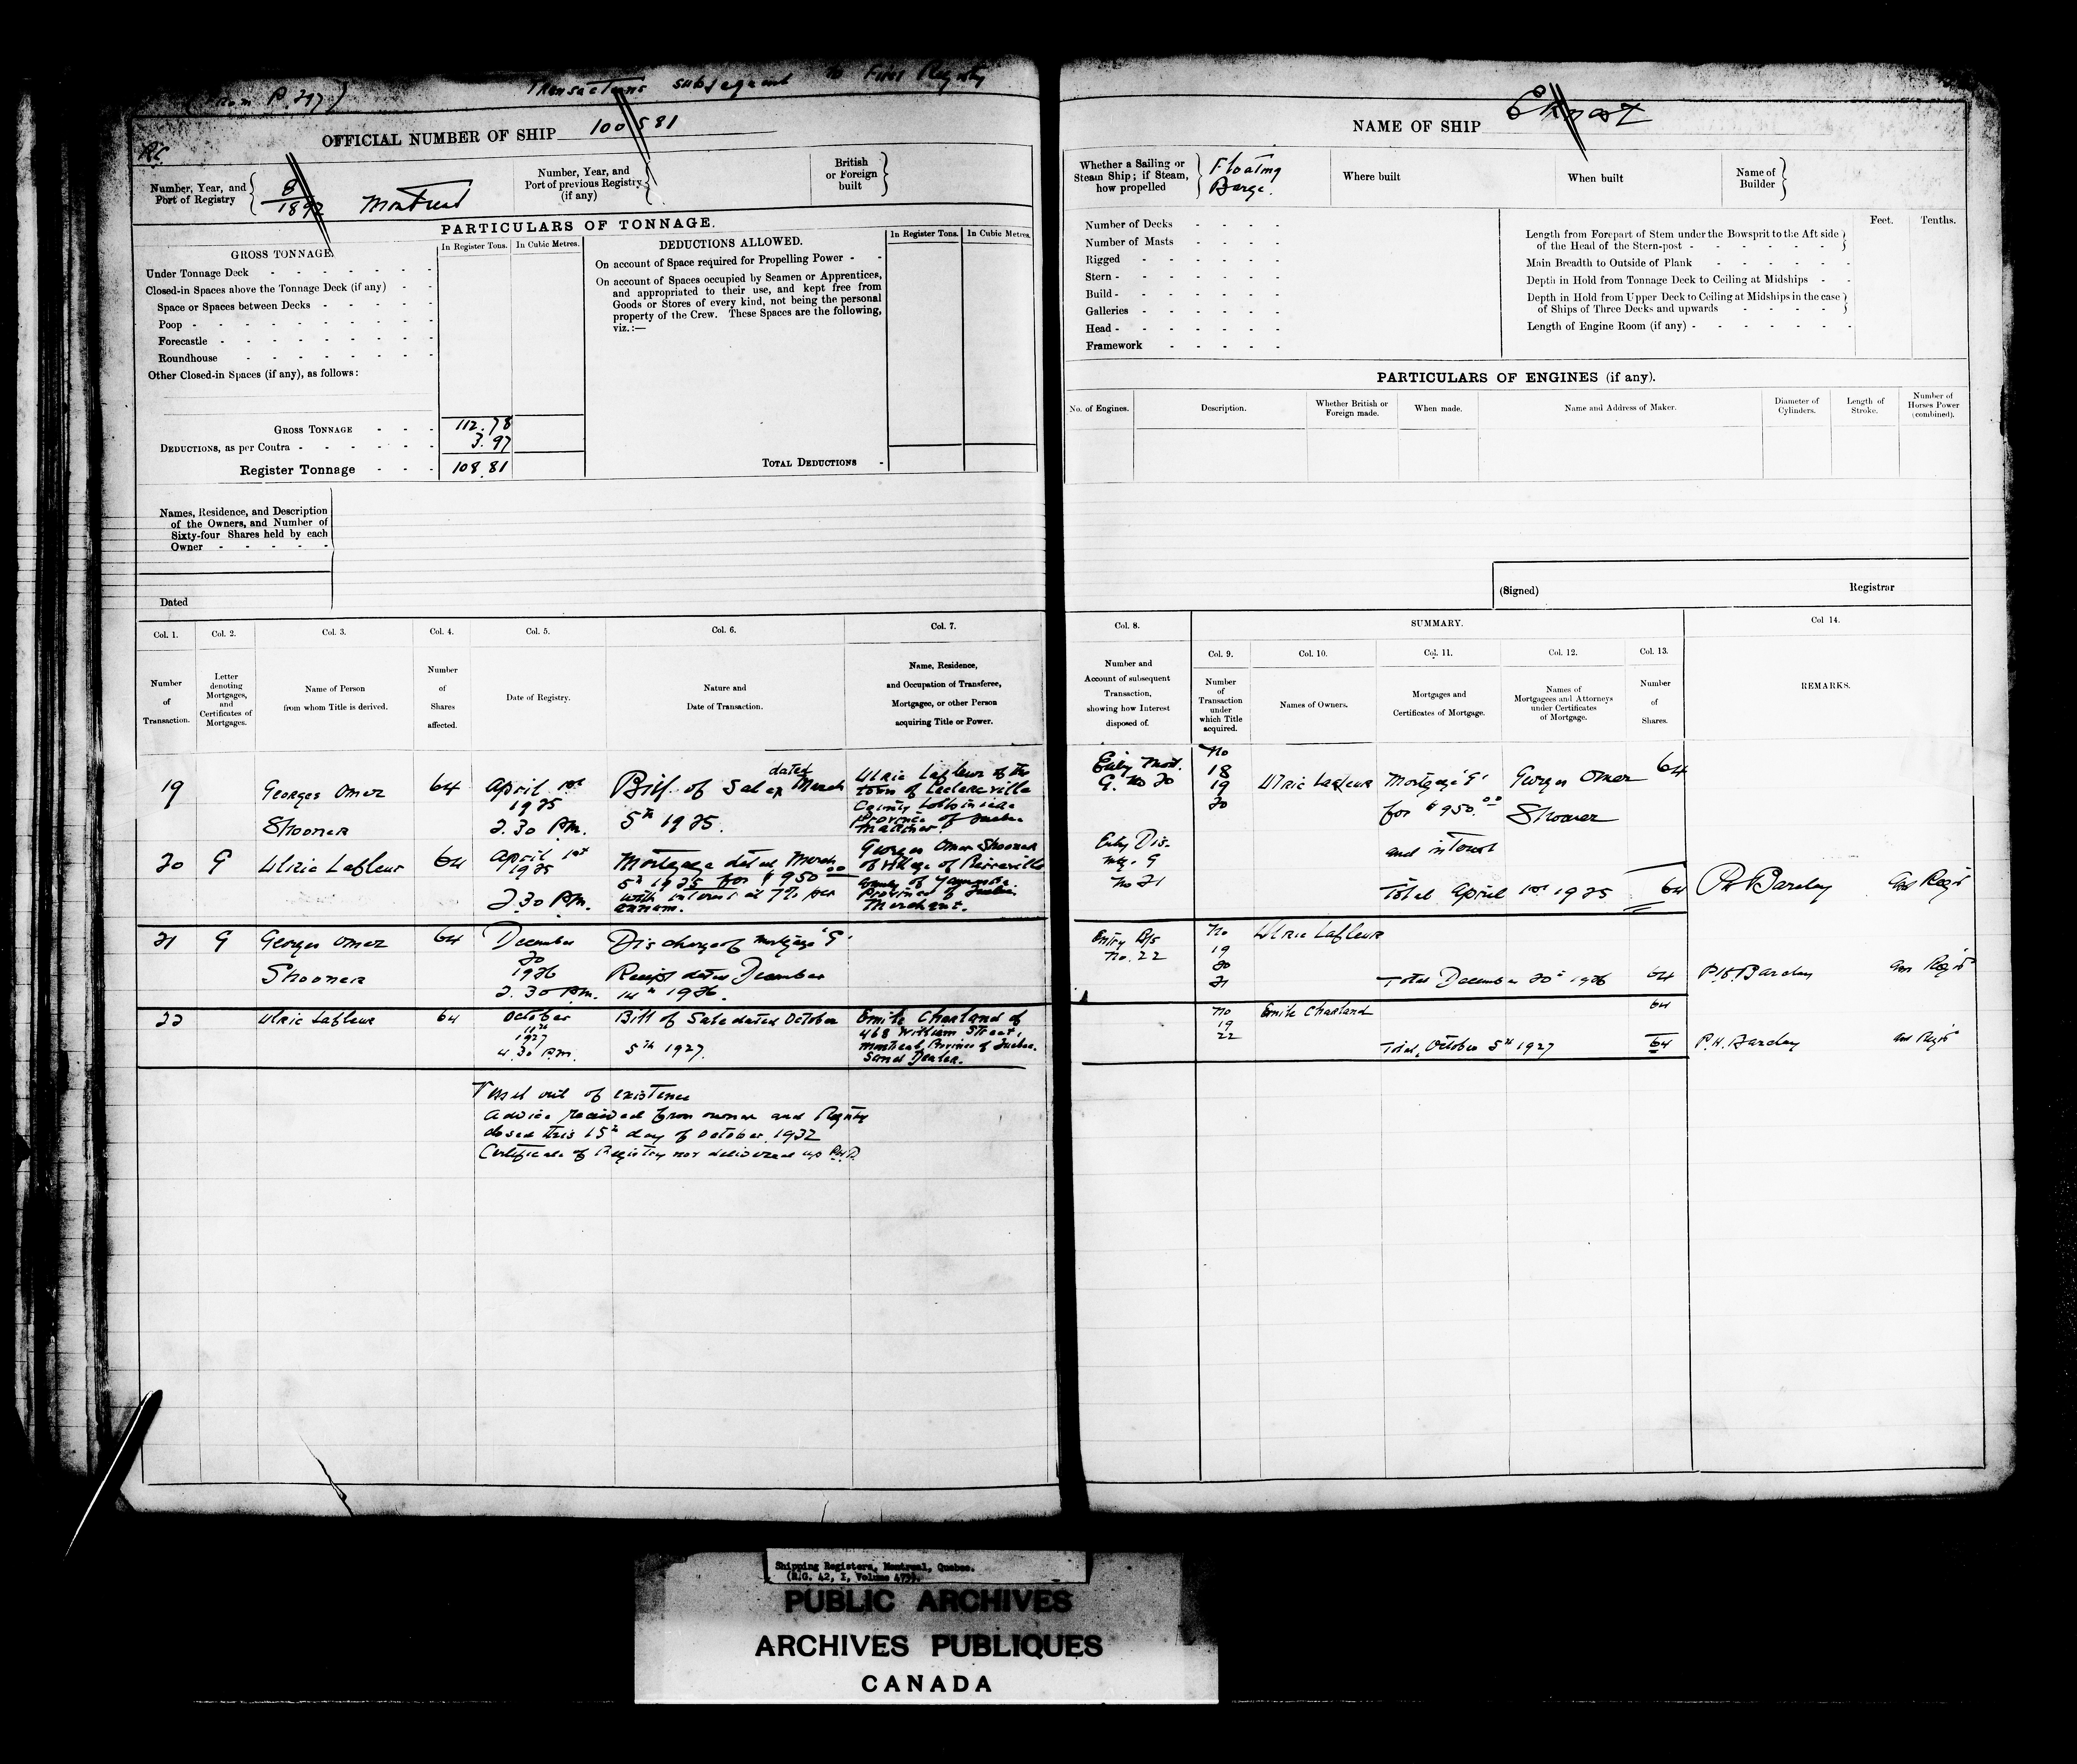 (From P. 217)
Transactions subsequent to First Registry
OFFICIAL NUMBER OF SHIP 100581
Number, Year, and
Port of Registry
8
1892
Montreal
Number, Year, and
Port of previous Registry
(if any)
British
or Foreign
built
PARTICULARS OF TONNAGE.
GROSS TONNAGE.
In Register Tons.
In Cubic Metres.
DEDUCTIONS ALLOWED.
In Register Tons.
In Cubic Metres.
Under Tonnage Deck
Closed-in Spaces above the Tonnage Deck (if any)
Space or Spaces between Decks
Poop
Forecastle
Roundhouse
Other Closed-in Spaces (if any), as follows:
On account of Space required for Propelling Power
On account of Spaces occupied by Seamen or Apprentices,
and appropriated to their use, and kept free from
Goods or Stores of every kind, not being the personal
property of the Crew. These Spaces are the following,
viz.:—
GROSS TONNAGE 112.78
DEDUCTIONS, as per Contra 3.97
Register Tonnage 108.81
TOTAL DEDUCTIONS
Names, Residence, and Description
of the Owners, and Number of
Sixty-four Shares held by each
Owner
Dated
Col. 1.
Number
of
Transaction.
Col. 2.
Letter
denoting
Mortgages,
and
Certificates of
Mortgages.
Col. 3.
Name of Person
from whom Title is derived.
Col. 4.
Number
of
Shares
affected.
Col. 5.
Date of Registry.
Col. 6.
Nature and
Date of Transaction.
Col. 7.
Name, Residence,
and Occupation of Transferee,
Mortgagee, or other Person
acquiring Title or Power.
19
Georges Omer
Shooner
64
April 1st
1925
2.30 P.M.
Bill of Sale dated March
5th 1925.
Ulric Lafleur of the
town of Leclercville
County Lotbiniere
Province of Quebec
20 G
Ulric Lafleur
64
April 1st
1925
2.30 P.M.
Mortgage dated March
5th 1925 for $950.00
with interest at 7% per
annum.
Georges Omer Shooner
of Village of Pierreville
County of Yamaska
Province of Quebec
Merchant.
21 G
Georges Omer
Shooner
64
December
20
1926
2.30 P.M.
Discharge of mortgage 'G'
Receipt dated December
14th 1926.
22
Ulric Lafleur
64
October
11th
1927
4.30 P.M.
Bill of Sale dated October
5th 1927.
Emile Charland of
468 William Street,
Montreal, Province of Quebec.
Sand Dealer.
Vessel out of existence
Advice received from owner and Registry
closed this 15th day of October 1932
Certificate of Registry not delivered up
NAME OF SHIP Ernest
Whether a Sailing or
Steam Ship; if Steam,
how propelled
Floating
Barge.
Where built
When built
Name of
Builder
Number of Decks
Number of Masts
Rigged
Stern
Build
Galleries
Head
Framework
Feet.
Tenths.
Length from Forepart of Stem under the Bowsprit to the Aft side
of the Head of the Stern-post
Main Breadth to Outside of Plank
Depth in Hold from Tonnage Deck to Ceiling at Midships
Depth in Hold from Upper Deck to Ceiling at Midships in the case
of Ships of Three Decks and upwards
Length of Engine Room (if any)
PARTICULARS OF ENGINES (if any).
No. of Engines.
Description.
Whether British or
Foreign made.
When made.
Name and Address of Maker.
Diameter of
Cylinders.
Length of
Stroke.
Number of
Horses Power
(combined).
(Signed)
Registrar
Col. 8.
Number and
Account of subsequent
Transaction,
showing how Interest
disposed of.
SUMMARY.
Col. 9.
Number
of
Transaction
under
which Title
acquired.
Col. 10.
Names of Owners.
Col. 11.
Mortgages and
Certificates of Mortgage.
Col. 12.
Names of
Mortgagees and Attorneys
under Certificates
of Mortgage.
Col. 13.
Number
of
Shares.
Col 14.
REMARKS.
Entry Mort.
G. No 20
No
18
19
20
Ulric Lafleur
Mortgage 'G'
for $950.00
and interest
Georges Omer
Shooner
64
Entry Dis.
Mtg. G
No 21
Total April 1st 1925 64
P.H. Barclay
Entry B/S
No. 22
No
19
20
21
Ulric Lafleur
Total December 20th 1926 64
P.H. Barclay
No
19
22
Emile Charland
64
Total, October 5th 1927 64
P.H. Barclay
Shipping Registers, Montreal, Quebec.
(R.G. 42, I, Volume 475).
PUBLIC ARCHIVES
ARCHIVES PUBLIQUES
CANADA